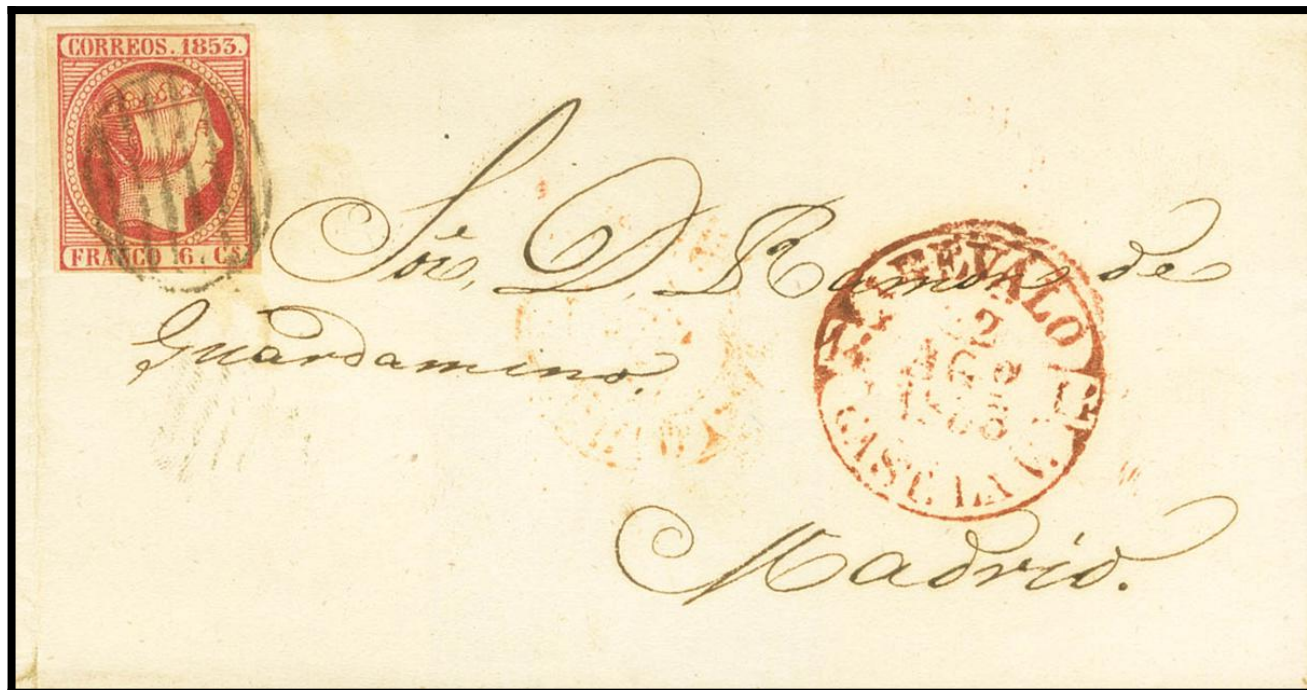 CORREOS. 1853.
FRANCO 6 Cs
Sór, D, Ramon de
Guardamino.
AREVALO
2
AGO
CAST. LA V.
Madrid.